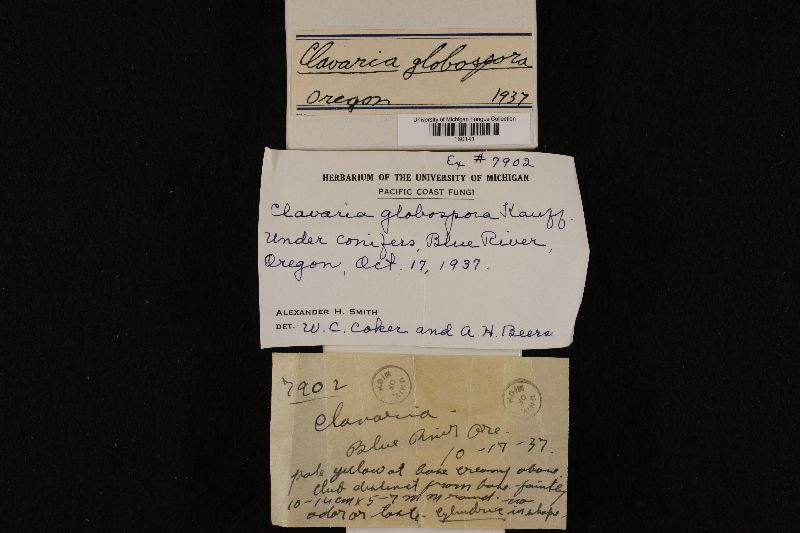 Clavaria globospora
Oregon 1937
University of Michigan Fungus Collection
160141
Ex # 7902
HERBARIUM OF THE UNIVERSITY OF MICHIGAN
PACIFIC COAST FUNGI
Clavaria globospora Kauff.
Under conifers, Blue River,
Oregon, Oct. 17, 1937.
ALEXANDER H. SMITH
DET. W. C. Coker and A. H. Beers
7902
UNIV. OF MICH
UNIV. OF MICH
Clavaria.
Blue River Ore.
10-17-37.
pale yellow at base creamy above.
Club distinct from base faintly
10-14 cm x 5-7 mm round. no
odor or taste. cylindric in shape.